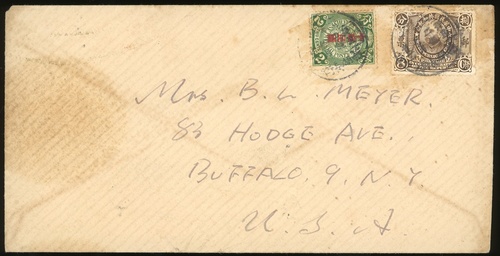 Mrs. B. L. MEYER.
83 HODGE AVE.,
BUFFALO. 9. N.Y.
U. S. A.